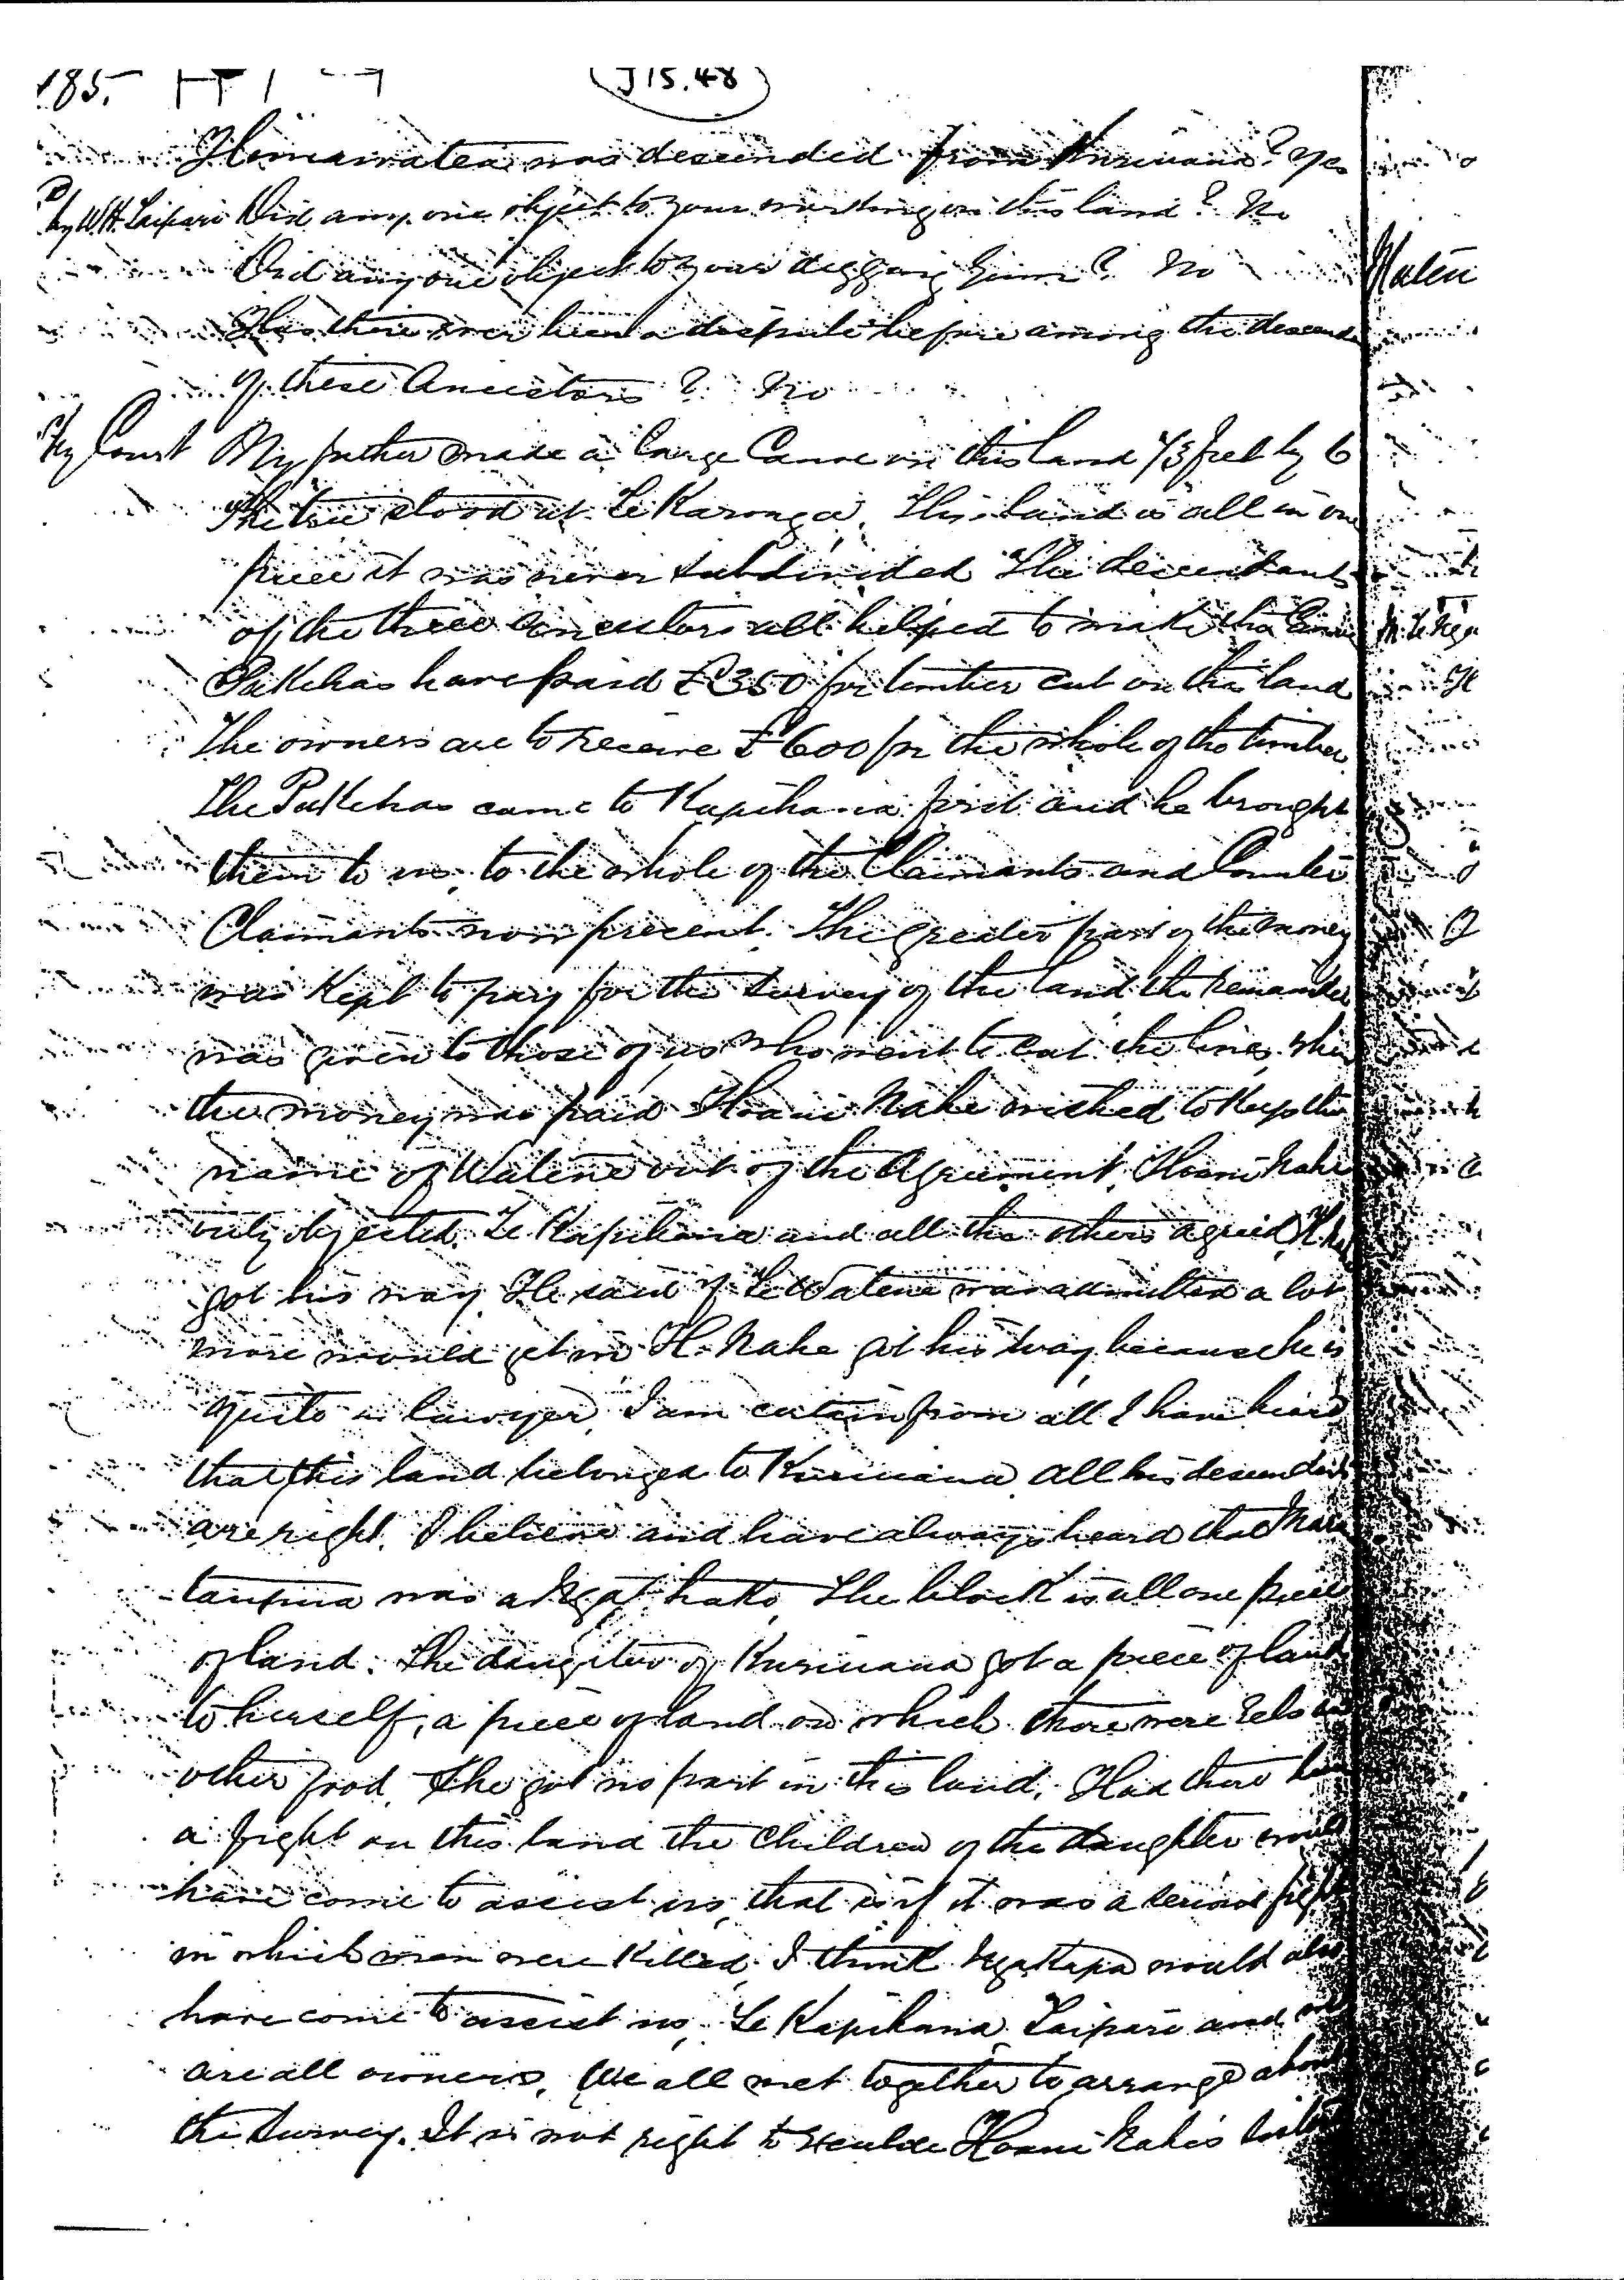 185.
J15.48
Hineawatea was descended from Kuriuaua? Yes
by W.H. Taipari Did any one object to your working on this land? No
Did any one object to your digging Gum? No
Has there ever been a dispute before among the descend
of these Ancestors? No
By Court My father made a large Canoe on this land 73 feet by 6
The tree stood at Te Karonga. This land is all in one
piece it was never subdivided The descendants
of the three Ancestors all helped to make the Canoe
Pakehas have paid £350 for timber cut on the land
The owners are to receive £600 for the whole of the timber
The Pakehas came to Kapihana first and he brought
them to us, to the whole of the Claimants and Counter
Claimants now present. The greater part of the money
was kept to pay for the survey of the land the remainder
was given to those of us who went to cut the lines, when
the money was paid Hoani Nahe wished to keep the
name of Watene out of the Agreement, Hoani Nahe
only objected. Te Kapihana and all the others agreed,
got his way. He said if Te Watene was admitted a lot
more would get in H. Nahe got his way because he is
quite a lawyer, I am certain from all I have heard
that this land belonged to Kuriuaua all his descendants
are right. I believe and have always heard that Mara
taupua was a Ngati hako, The block is all one piece
of land. The daughter of Kuriuaua got a piece of land
to herself, a piece of land on which there were Eels and
other food. She got no part in this land. Had there been
a fight on this land the Children of the daughter would
have come to assist us, that is if it was a serious fight
in which men were killed, I think Ngakapa would also
have come to assist us, Te Kapihana, Taipari and
are all owners. We all met together to arrange about
the Survey. It is not right to exclude Hoani Nahe's
Waten